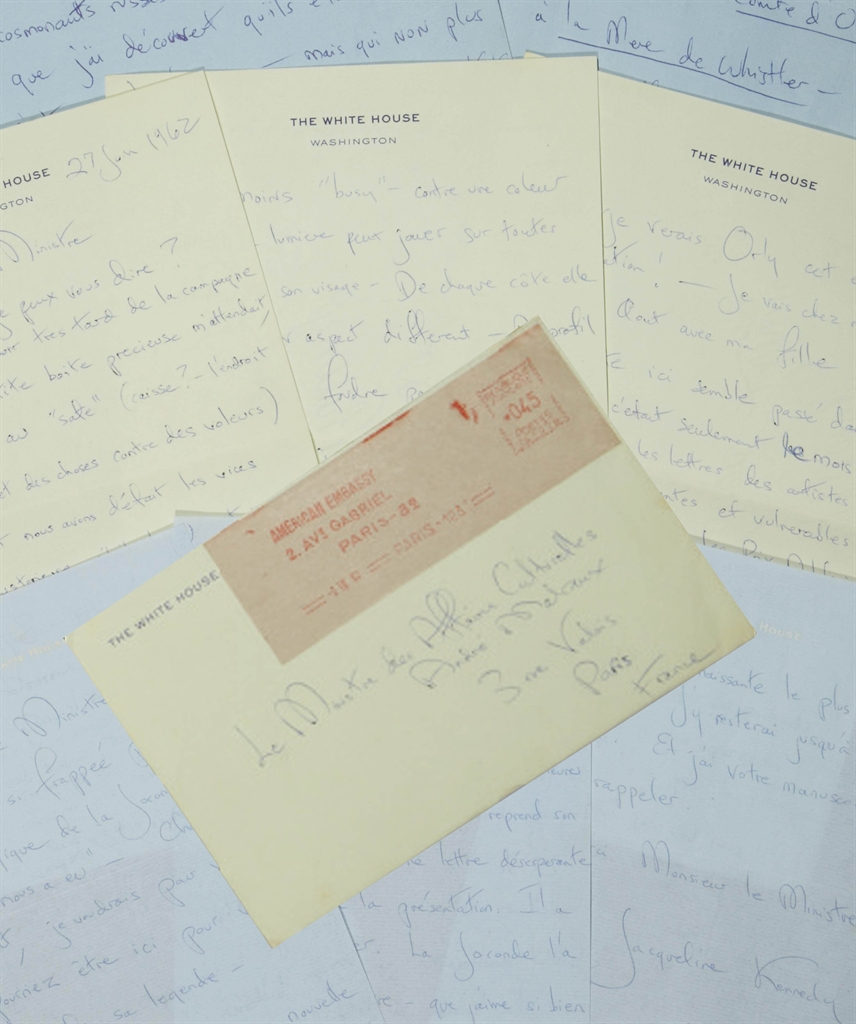 cosmonauts russes
que j'ai découvert qu'ils
— mais qui NON plus
comte d'O
à la Mere de Whistler —
HOUSE
GTON
27 Juin 1962
Ministre
je peux vous dire ?
tres tard de la campagne
boite precieuse m'attendait
au "safe" (caisse? - l'endroit
et des choses contre des voleurs)
nous avons d'état les vices
THE WHITE HOUSE
WASHINGTON
moins "busy" - contre une couleur
lumiere peux jouer sur toutes
son visage - De chaque côté elle
aspect different -
THE WHITE HOUSE
WASHINGTON
je verais Orly cet é
! — Je vais chez
Aout avec ma fille
ici semble passé da
c'était seulement le mois
les lettres des artistes
et vulnerables
AMERICAN EMBASSY
2, AVE GABRIEL
PARIS-8e
PARIS-123
045
POSTES
THE WHITE HOUSE
Le Ministre des Affaires Culturelles
André Malraux
3 rue Valois
Paris
France
Ministre
si frappée
de la Jocon
nous a eu" -
je voudrais
être ici pour
sa legende -
nouvelle
reprend son
lettre désesperante
la présentation. Il a
La Joconde l'a
- que j'aime si bien
HOUSE
naissante le plus
J'y resterai jusqu'à
Et j'ai votre manusc
rappeler.
Monsieur le Ministre
Jacqueline Kennedy